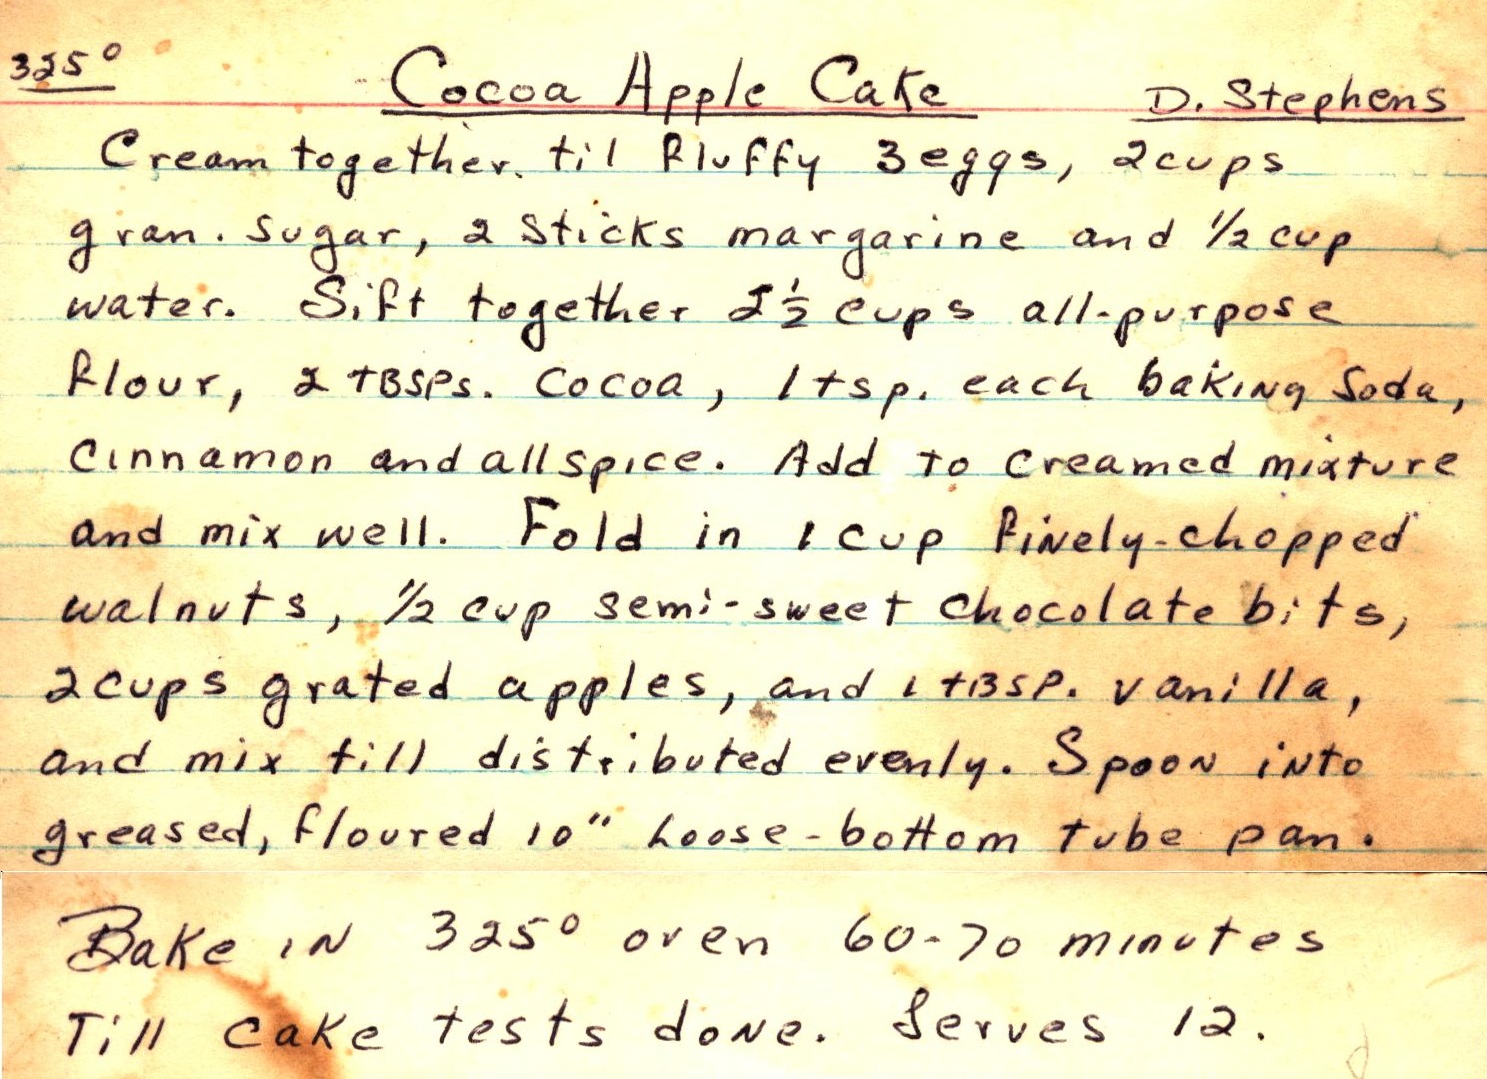 325°
Cocoa Apple Cake
D. Stephens
Cream together til fluffy 3 eggs, 2 cups
gran. sugar, 2 sticks margarine and 1/2 cup
water. Sift together 2 1/2 cups all-purpose
flour, 2 TBSPs. cocoa, 1 tsp. each baking soda,
cinnamon and allspice. Add to creamed mixture
and mix well. Fold in 1 cup finely-chopped
walnuts, 1/2 cup semi-sweet chocolate bits,
2 cups grated apples, and 1 TBSP. vanilla,
and mix till distributed evenly. Spoon into
greased, floured 10" loose-bottom tube pan.
Bake in 325° oven 60-70 minutes
Till cake tests done. Serves 12.